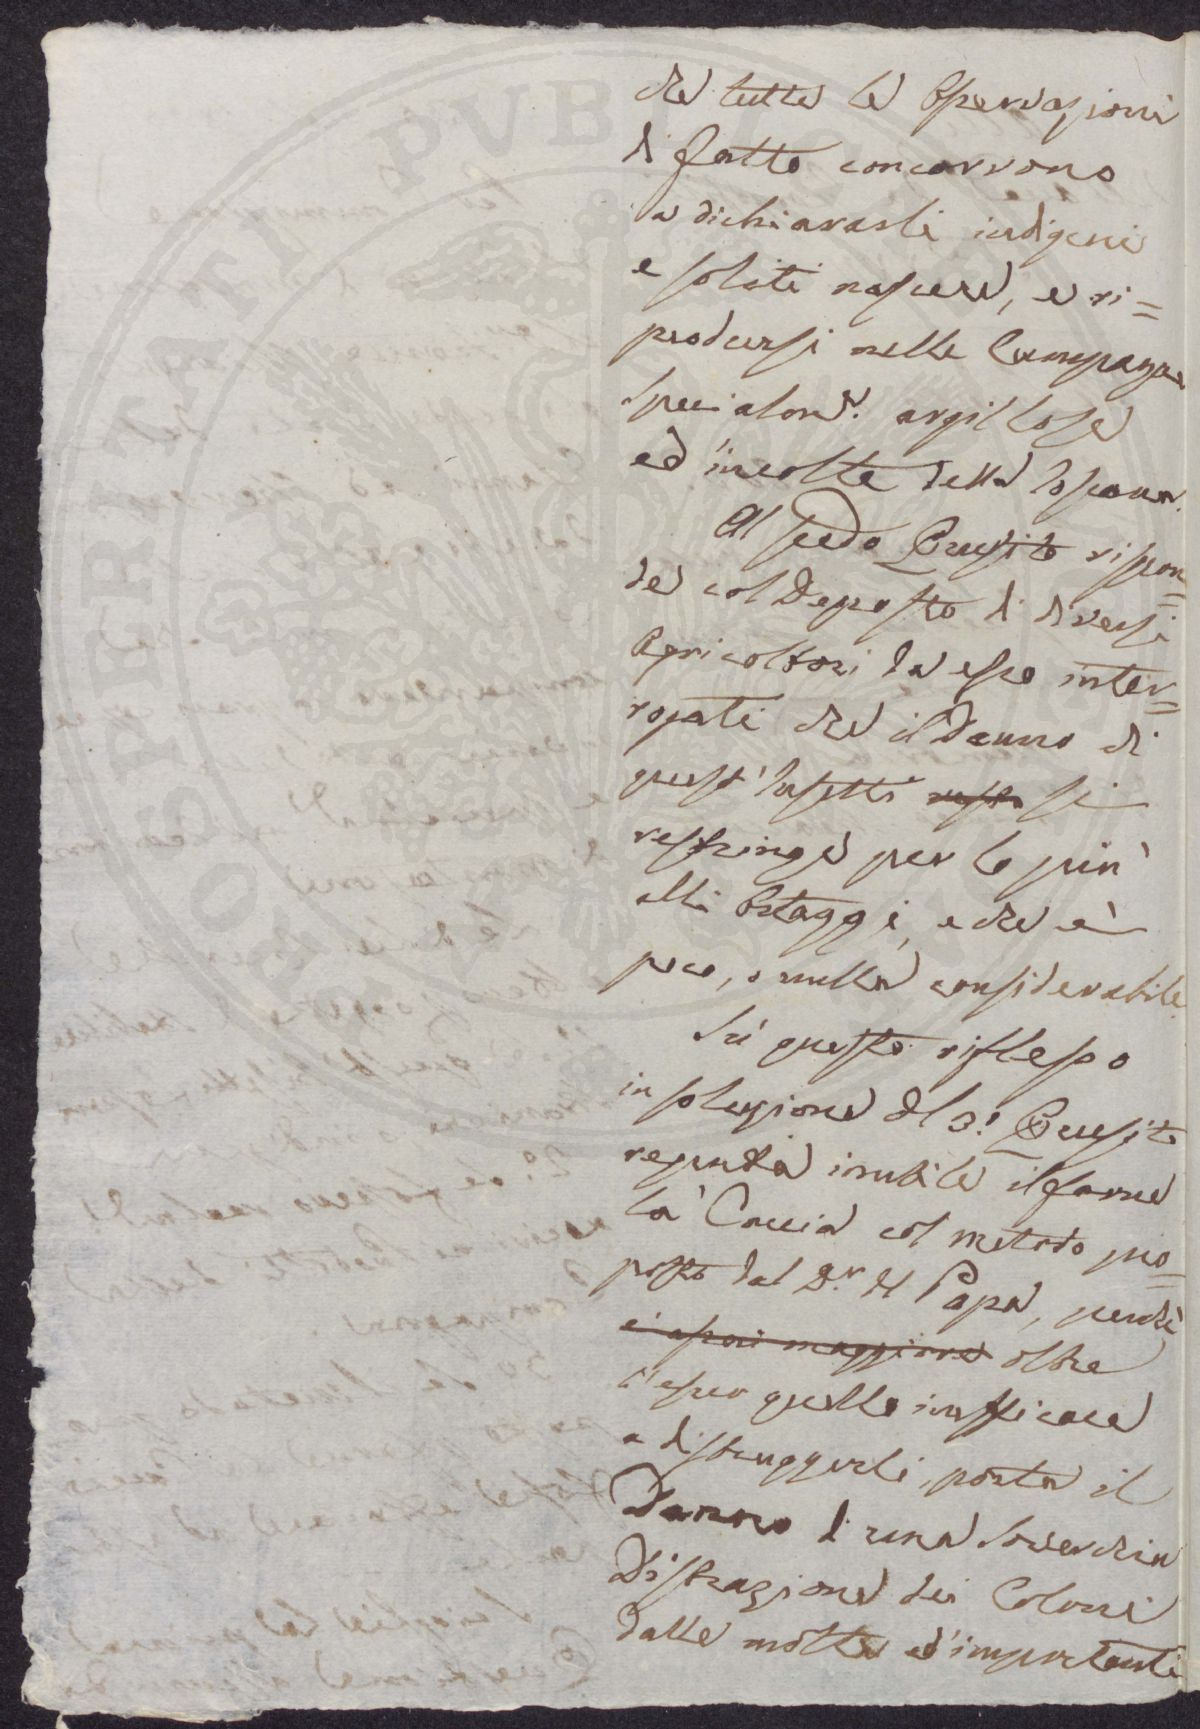 che tutte le Osservazioni
di fatto concorrono
a dichiararli indigeni
e soliti nascere, e ri=
prodursi nelle Campagne
specialm.e argillose
ed incolte della Toscana.
Al secdo Quesito rispon=
de col Deposto di diversi
Agricoltori da esso inter=
rogati che il Danno di
quest'Insetti resta si
restringe per lo più
alli Ortaggi, e che è
poco, o nulla considerabile.
Su questo riflesso
in soluzione del 3.o Quesito
reputa inutile il farne
la Caccia col metodo pro=
posto dal Sr. Del Papa, perchè
oltre
l'esser quello inefficace
a distruggerli, porta il
Danno di una soverchia
Distrazione dei Coloni
dalle molte ed importanti
OPERTATI PVBLICAE